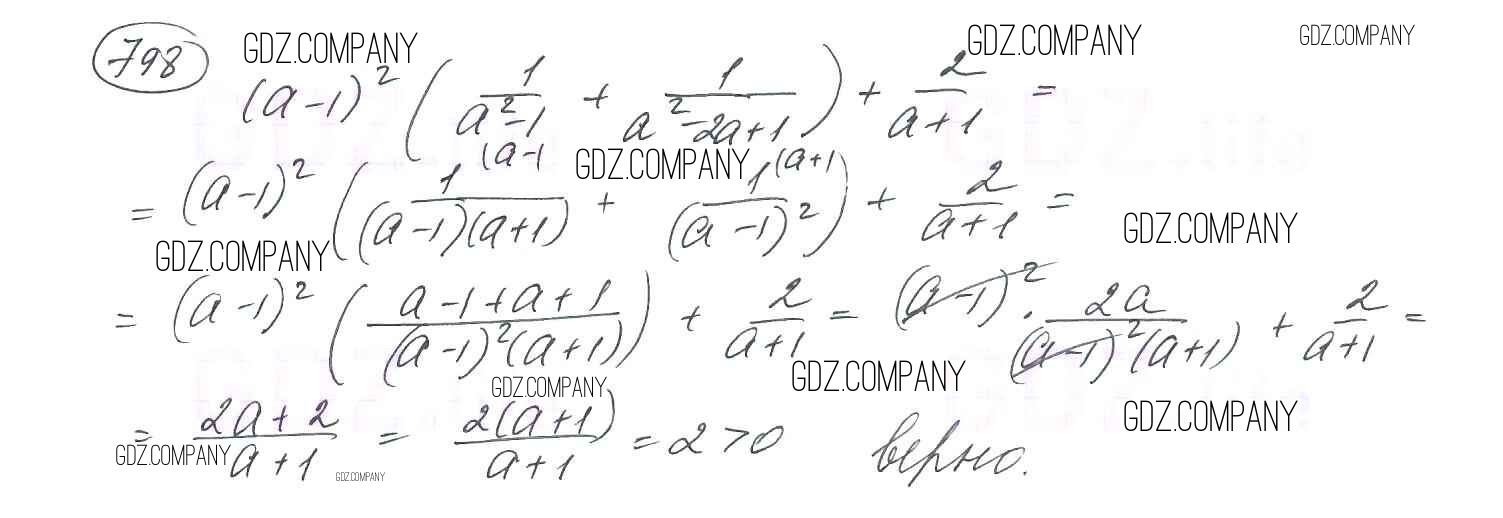 798 GDZ.COMPANY GDZ.COMPANY GDZ.COMPANY
(a-1)² (1/(a²-1) + 1/(a²-2a+1)) + 2/(a+1) =
GDZ.COMPANY
= (a-1)² (1(a-1/((a-1)(a+1)) + 1(a+1)/(a-1)²) + 2/(a+1) =
GDZ.COMPANY GDZ.COMPANY
= (a-1)² ((a-1+a+1)/((a-1)²(a+1))) + 2/(a+1) = (a-1)² · 2a/((a-1)²(a+1)) + 2/(a+1) =
GDZ.COMPANY GDZ.COMPANY GDZ.COMPANY
= (2a+2)/(a+1) = 2(a+1)/(a+1) = 2 > 0 верно.
GDZ.COMPANY GDZ.COMPANY